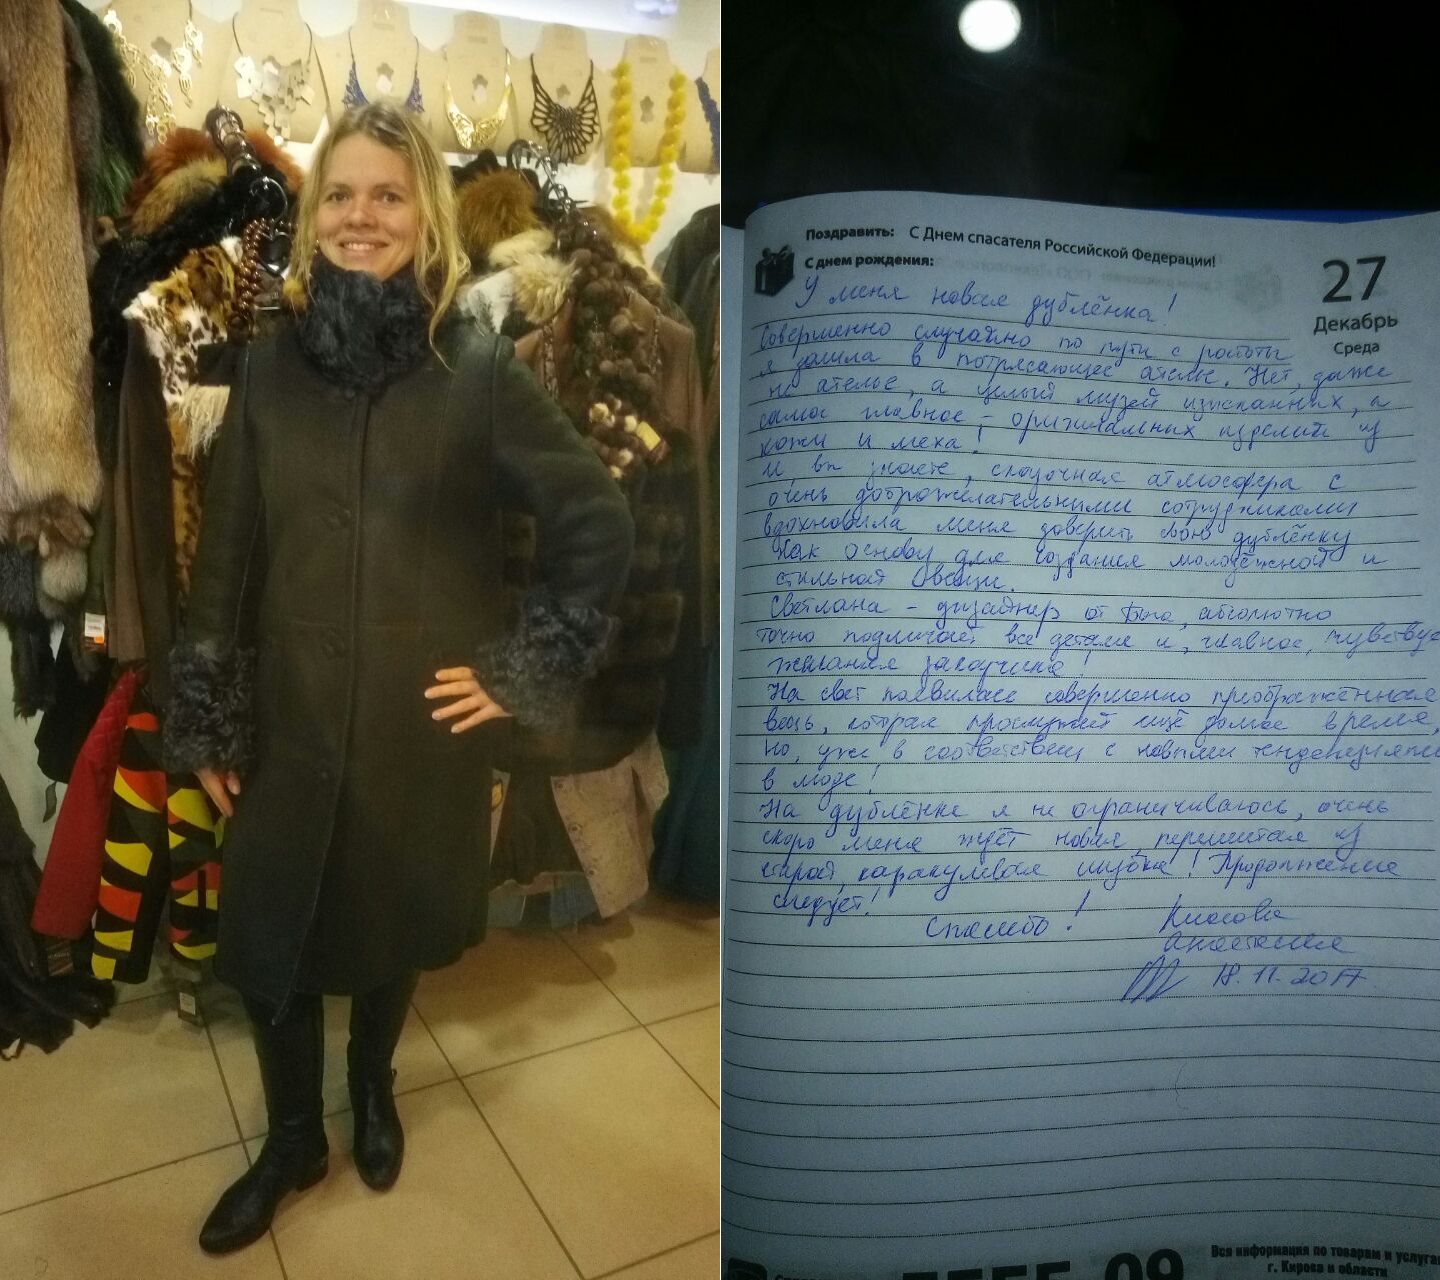 Поздравить: С Днем спасателя Российской Федерации!
С днем рождения:
27
Декабрь
Среда
У меня новая дублёнка!
Совершенно случайно по пути с работы
я зашла в потрясающее ателье. Нет, даже
не ателье, а целый музей изысканных, а
самое главное - оригинальных изделий из
кожи и меха!
И вы знаете, сказочная атмосфера с
очень доброжелательными сотрудниками
вдохновила меня доверить свою дублёнку
как основу для создания молодёжной и
стильной вещи.
Светлана - дизайнер от Бога, абсолютно
точно подмечает все детали и, главное, чувствует
желания заказчика!
На свет появилась совершенно преображённая
вещь, которая прослужит ещё долгое время,
но, уже в соответствии с новыми тенденциями
в моде!
На дублёнке я не ограничиваюсь, очень
скоро меня ждёт новая, перешитая из
старой, каракулевая шубка! Продолжение
следует!
Спасибо!
Анастасия
18.11.2017
Вся информация по товарам и услугам
г. Кирова и области